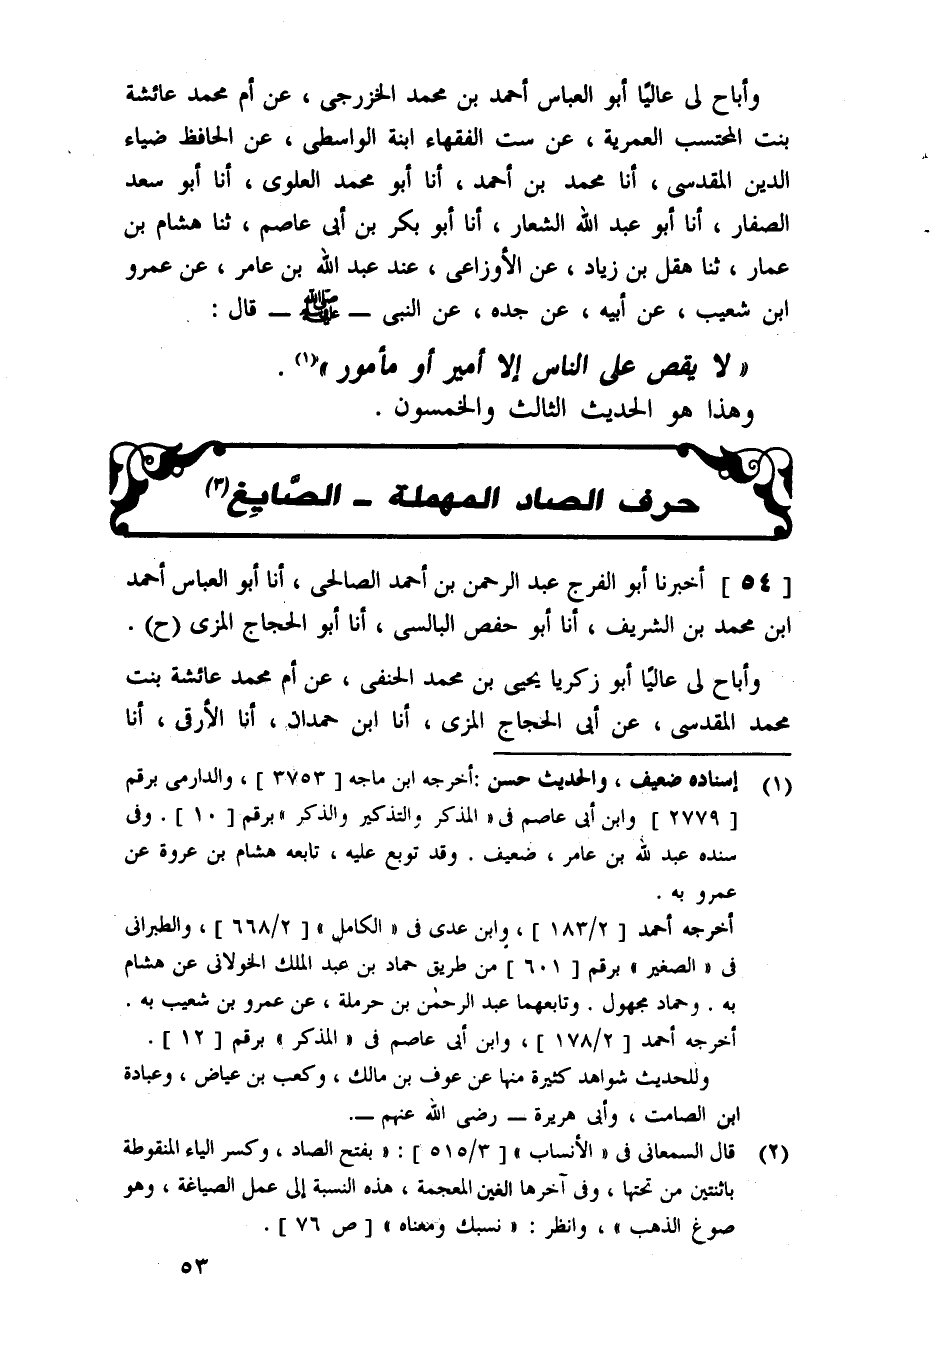 وأباح لى عاليًا أبو العباس أحمد بن محمد الخزرجى ، عن أم محمد عائشة
بنت المحتسب العمرية ، عن ست الفقهاء ابنة الواسطى ، عن الحافظ ضياء
الدين المقدسى ، أنا محمد بن أحمد ، أنا أبو محمد العلوى ، أنا أبو سعد
الصفار ، أنا أبو عبد الله الشعار ، أنا أبو بكر بن أبى عاصم ، ثنا هشام بن
عمار ، ثنا هقل بن زياد ، عن الأوزاعى ، عند عبد الله بن عامر ، عن عمرو
ابن شعيب ، عن أبيه ، عن جده ، عن النبى – ﷺ – قال :
« لا يقص على الناس إلا أمير أو مأمور »(١) .
وهذا هو الحديث الثالث والخمسون .
حرف الصاد المهملة - الصَّايِغ(٣)
[ ٥٤ ] أخبرنا أبو الفرج عبد الرحمن بن أحمد الصالحى ، أنا أبو العباس أحمد
ابن محمد بن الشريف ، أنا أبو حفص البالسى ، أنا أبو الحجاج المزى (ح) .
وأباح لى عاليًا أبو زكريا يحيى بن محمد الحنفى ، عن أم محمد عائشة بنت
محمد المقدسى ، عن أبى الحجاج المزى ، أنا ابن حمدان ، أنا الأرقى ، أنا
(١) إسناده ضعيف ، والحديث حسن :أخرجه ابن ماجه [ ٣٧٥٣ ] ، والدارمى برقم
[ ٢٧٧٩ ] وابن أبى عاصم فى « المذكر والتذكير والذكر » برقم [ ١٠ ] . وفى
سنده عبد لله بن عامر ، ضعيف . وقد توبع عليه ، تابعه هشام بن عروة عن
عمرو به .
أخرجه أحمد [ ١٨٣/٢ ] ، وابن عدى فى « الكامل » [ ٦٦٨/٢ ] ، والطبرانى
فى « الصغير » برقم [ ٦٠١ ] من طريق حماد بن عبد الملك الخولانى عن هشام
به . وحماد مجهول . وتابعهما عبد الرحمٰن بن حرملة ، عن عمرو بن شعيب به .
أخرجه أحمد [ ١٧٨/٢ ] ، وابن أبى عاصم فى « المذكر » برقم [ ١٢ ] .
وللحديث شواهد كثيرة منها عن عوف بن مالك ، وكعب بن عياض ، وعبادة
ابن الصامت ، وأبى هريرة – رضى الله عنهم –.
(٢) قال السمعانى فى « الأنساب » [ ٥١٥/٣ ] : « بفتح الصاد ، وكسر الياء المنقوطة
باثنتين من تحتها ، وفى آخرها الغين المعجمة ، هذه النسبة إلى عمل الصياغة ، وهو
صوغ الذهب » ، وانظر : « نسبك ومعناه » [ ص ٧٦ ] .
٥٣